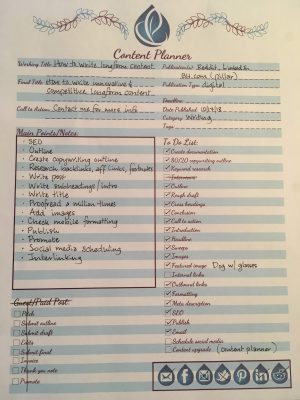 Content Planner
Working Title How to write longform content
Publication(s) Reddit, LinkedIn
.com (pillar)
Final Title How to write innovative &
Competitive longform content
Publication Type digital
Deadline
Date Published
Call to Action Contact me for more info
Category Writing
Tags
Main Points/Notes:
· SEO
· Outline
· Create copywriting outline
· Research backlinks, aff links, footnotes
· Write post
· Write subheadings/intro
· Write title
· Proofread a million times
· Add images
· Check mobile formatting
· Publish
· Promote
· Social media scheduling
· Interlinking
To Do List:
Create documentation
80/20 copywriting outline
Keyword research
Interviews
Outline
Rough draft
Cross headings
Conclusion
Call to action
Introduction
Headline
Sweeps
Images
Featured image Dog w/ glasses
Internal links
Outbound links
Formatting
Meta description
SEO
Publish
Email
Schedule social media
Content upgrade (content planner)
Guest/Paid Post:
Pitch
Submit outline
Submit draft
Edits
Submit final
Invoice
Thank you note
Promote